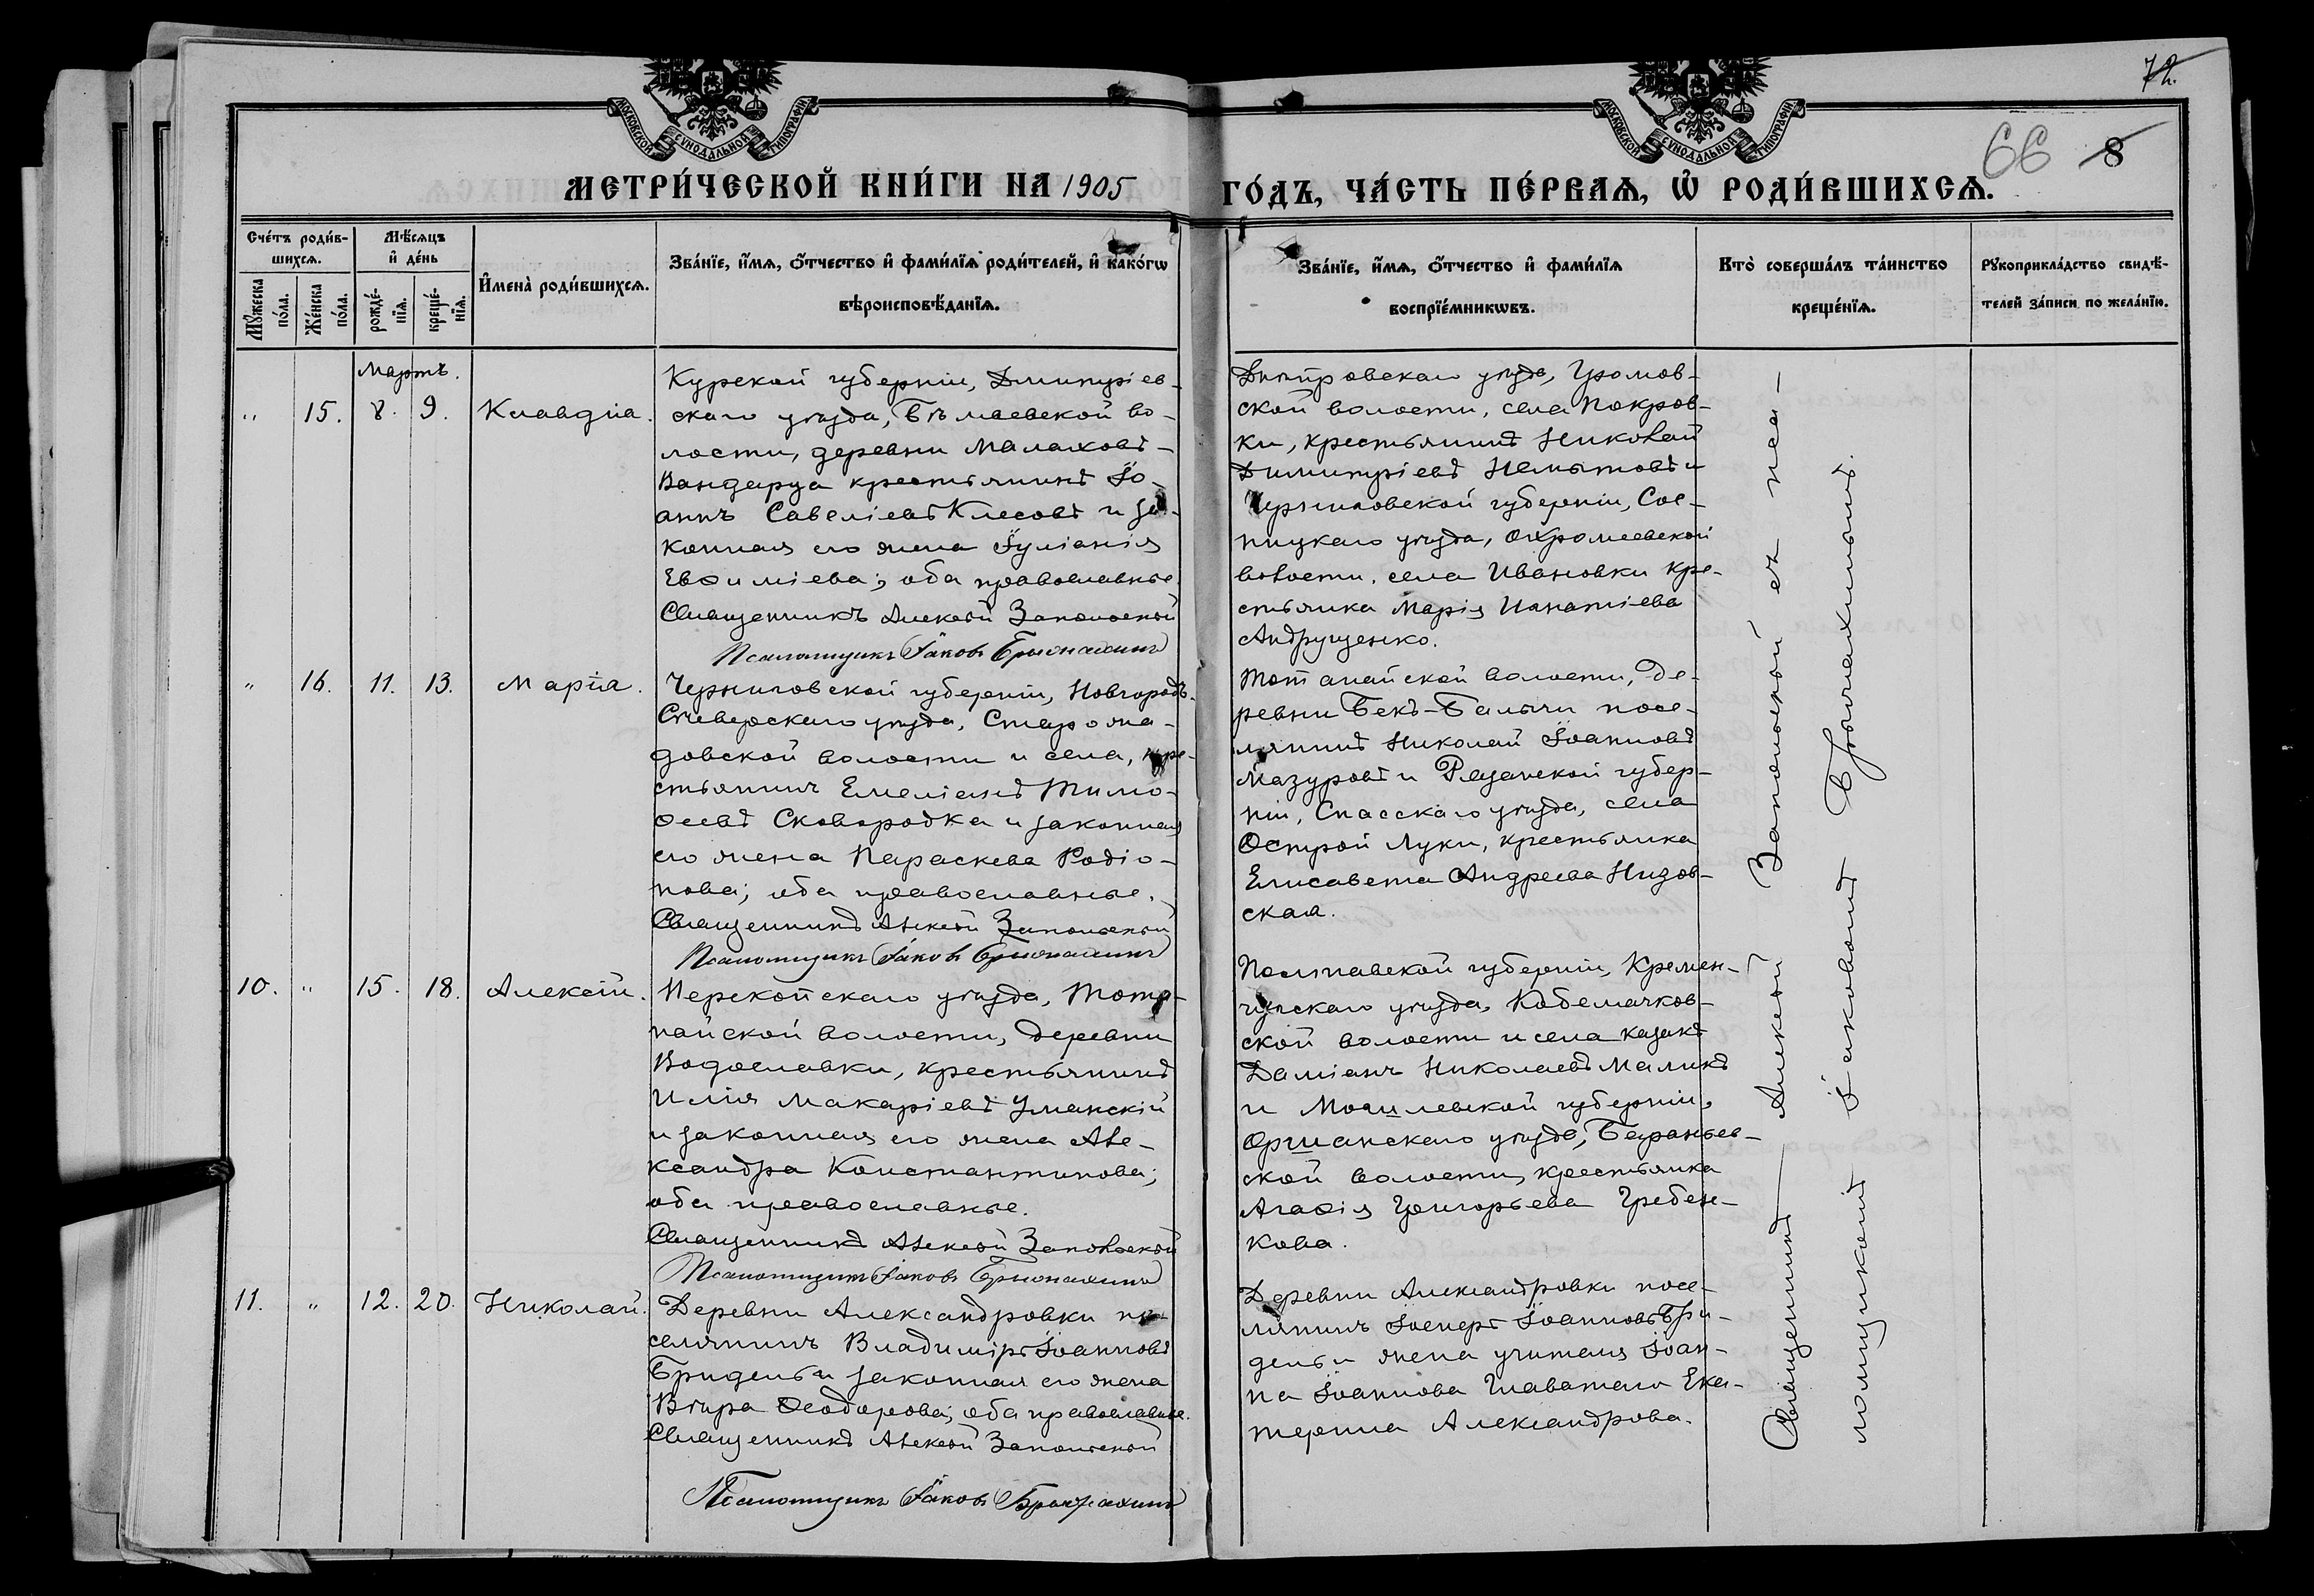 72
66 8
МОСКОВСКОЙ СѴНОДАЛЬНОЙ ТИПОГРАФІИ
МОСКОВСКОЙ СѴНОДАЛЬНОЙ ТИПОГРАФІИ
МЕТРИ́ЧЕСКОЙ КНИ́ГИ НА 1905
ГО́ДЪ, ЧА́СТЬ ПЕ́РВАЯ, Ѡ҆ РОДИ́ВШИХСЯ.
Сче́тъ роди́в-
шихся.
Мѣ́сяцъ
и҆ де́нь
Мꙋ́жеска
по́ла.
Же́нска
по́ла.
рожде́-
нїя.
креще́-
нїя.
И҆мена̀ роди́вшихся.
Зва́нїе, и҆́мя, ѻ҆́тчество и҆ фами́лїя роди́телей, и҆ како́гѡ
вѣроисповѣ́данїя.
Зва́нїе, и҆́мя, ѻ҆́тчество и҆ фами́лїя
воспрїе́мникѡвъ.
Кто̀ соверша́лъ та́инство
креще́нїя.
Рꙋкоприкла́дство свидѣ́-
телей за́писи по жела́нїю.
Мартъ.
" 15. 8. 9. Клавдіа.
Курской губерніи, Дмитріев-
скаго уѣзда,
лости, деревни Малахова-
крестьянинъ Іо-
аннъ Савеліевъ Клесовъ и за-
конная его жена Іуліанія
Евѳиміева; оба православные.
Священникъ Алексѣй Запольскій
Псаломщикъ Іаковъ
Днѣпровскаго уѣзда, Громов-
ской волости, села Покров-
ки, крестьянинъ Николай
Димитріевъ и
Черниговской губерніи, Сос-
ницкаго уѣзда, Охромеевской
волости, села Ивановки кре-
стьянка Марія Игнатіева
Андрущенко.
" 16. 11. 13. Маріа.
Черниговской губерніи, Новгородъ-
Сѣверскаго уѣзда,
довской волости и села, кре-
стьянинъ Емеліанъ Тимо-
ѳеевъ Сковородка и законная
его жена Параскева Родіо-
нова; оба православные.
Священникъ Алексѣй Запольскій
Псаломщикъ Іаковъ
волости, де-
ревни Бекъ-Балычи посе-
лянинъ Николай Іоанновъ
Мазуровъ и Рязанской губер-
ніи, Спасскаго уѣзда, села
Острой Луки, крестьянка
Елисавета Андреева Низов-
ская.
10. " 15. 18. Алексѣй.
Перекопскаго уѣзда,
найской волости, деревни
Водославки, крестьянинъ
Илія Макаріевъ Уманскій
и законная его жена Але-
ксандра Константинова;
оба православные.
Священникъ Алексѣй Запольскій
Псаломщикъ Іаковъ
Полтавской губерніи, Кремен-
чугскаго уѣзда,
ской волости и села казакъ
Даміанъ Николаевъ Маликъ
и Могилевской губерніи,
Оршанскаго уѣзда, Бараньев-
ской волости, крестьянка
Агаѳія Григорьева Гребен-
кова.
11. " 12. 20. Николай.
Деревни Александровки по-
селянинъ Владиміръ Іоанновъ
Бридель и законная его жена
Вѣра Ѳеодорова; оба православные.
Священникъ Алексѣй Запольскій
Псаломщикъ Іаковъ
Деревни Александровки посе-
лянинъ Іосифъ Іоанновъ Бри-
дель и жена учителя Іоан-
на Іоаннова Главатаго Ека-
терина Александрова.
Священникъ Алексѣй Запольскій съ пса-
ломщикомъ Іаковомъ